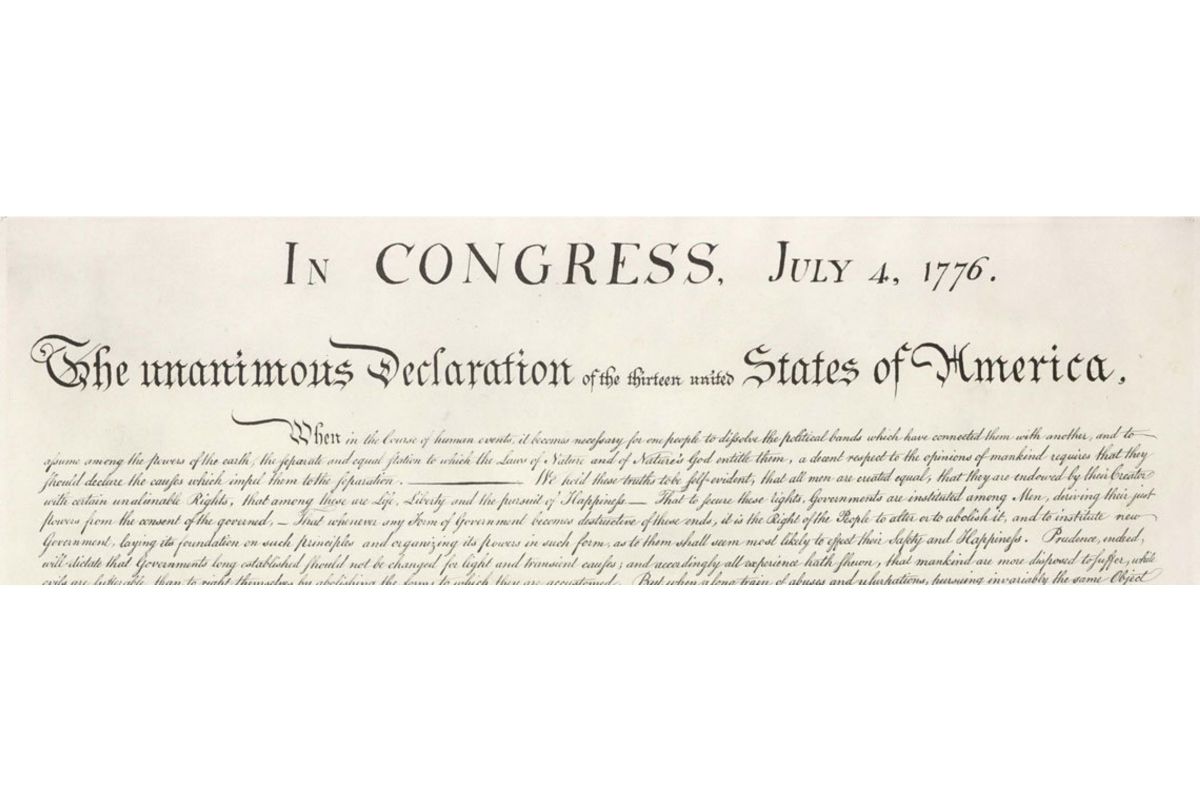 In CONGRESS, July 4, 1776.
The unanimous Declaration of the thirteen united States of America,
When in the Course of human events, it becomes necessary for one people to dissolve the political bands which have connected them with another, and to
assume among the powers of the earth, the separate and equal station to which the Laws of Nature and of Nature's God entitle them, a decent respect to the opinions of mankind requires that they
should declare the causes which impel them to the separation. ——— We hold these truths to be self-evident, that all men are created equal, that they are endowed by their Creator
with certain unalienable Rights, that among these are Life, Liberty and the pursuit of Happiness. — That to secure these rights, Governments are instituted among Men, deriving their just
powers from the consent of the governed, — That whenever any Form of Government becomes destructive of these ends, it is the Right of the People to alter or to abolish it, and to institute new
Government, laying its foundation on such principles and organizing its powers in such form, as to them shall seem most likely to effect their Safety and Happiness. Prudence, indeed,
will dictate that Governments long established should not be changed for light and transient causes; and accordingly all experience hath shewn, that mankind are more disposed to suffer, while
evils are sufferable, than to right themselves by abolishing the forms to which they are accustomed. But when a long train of abuses and usurpations, pursuing invariably the same Object